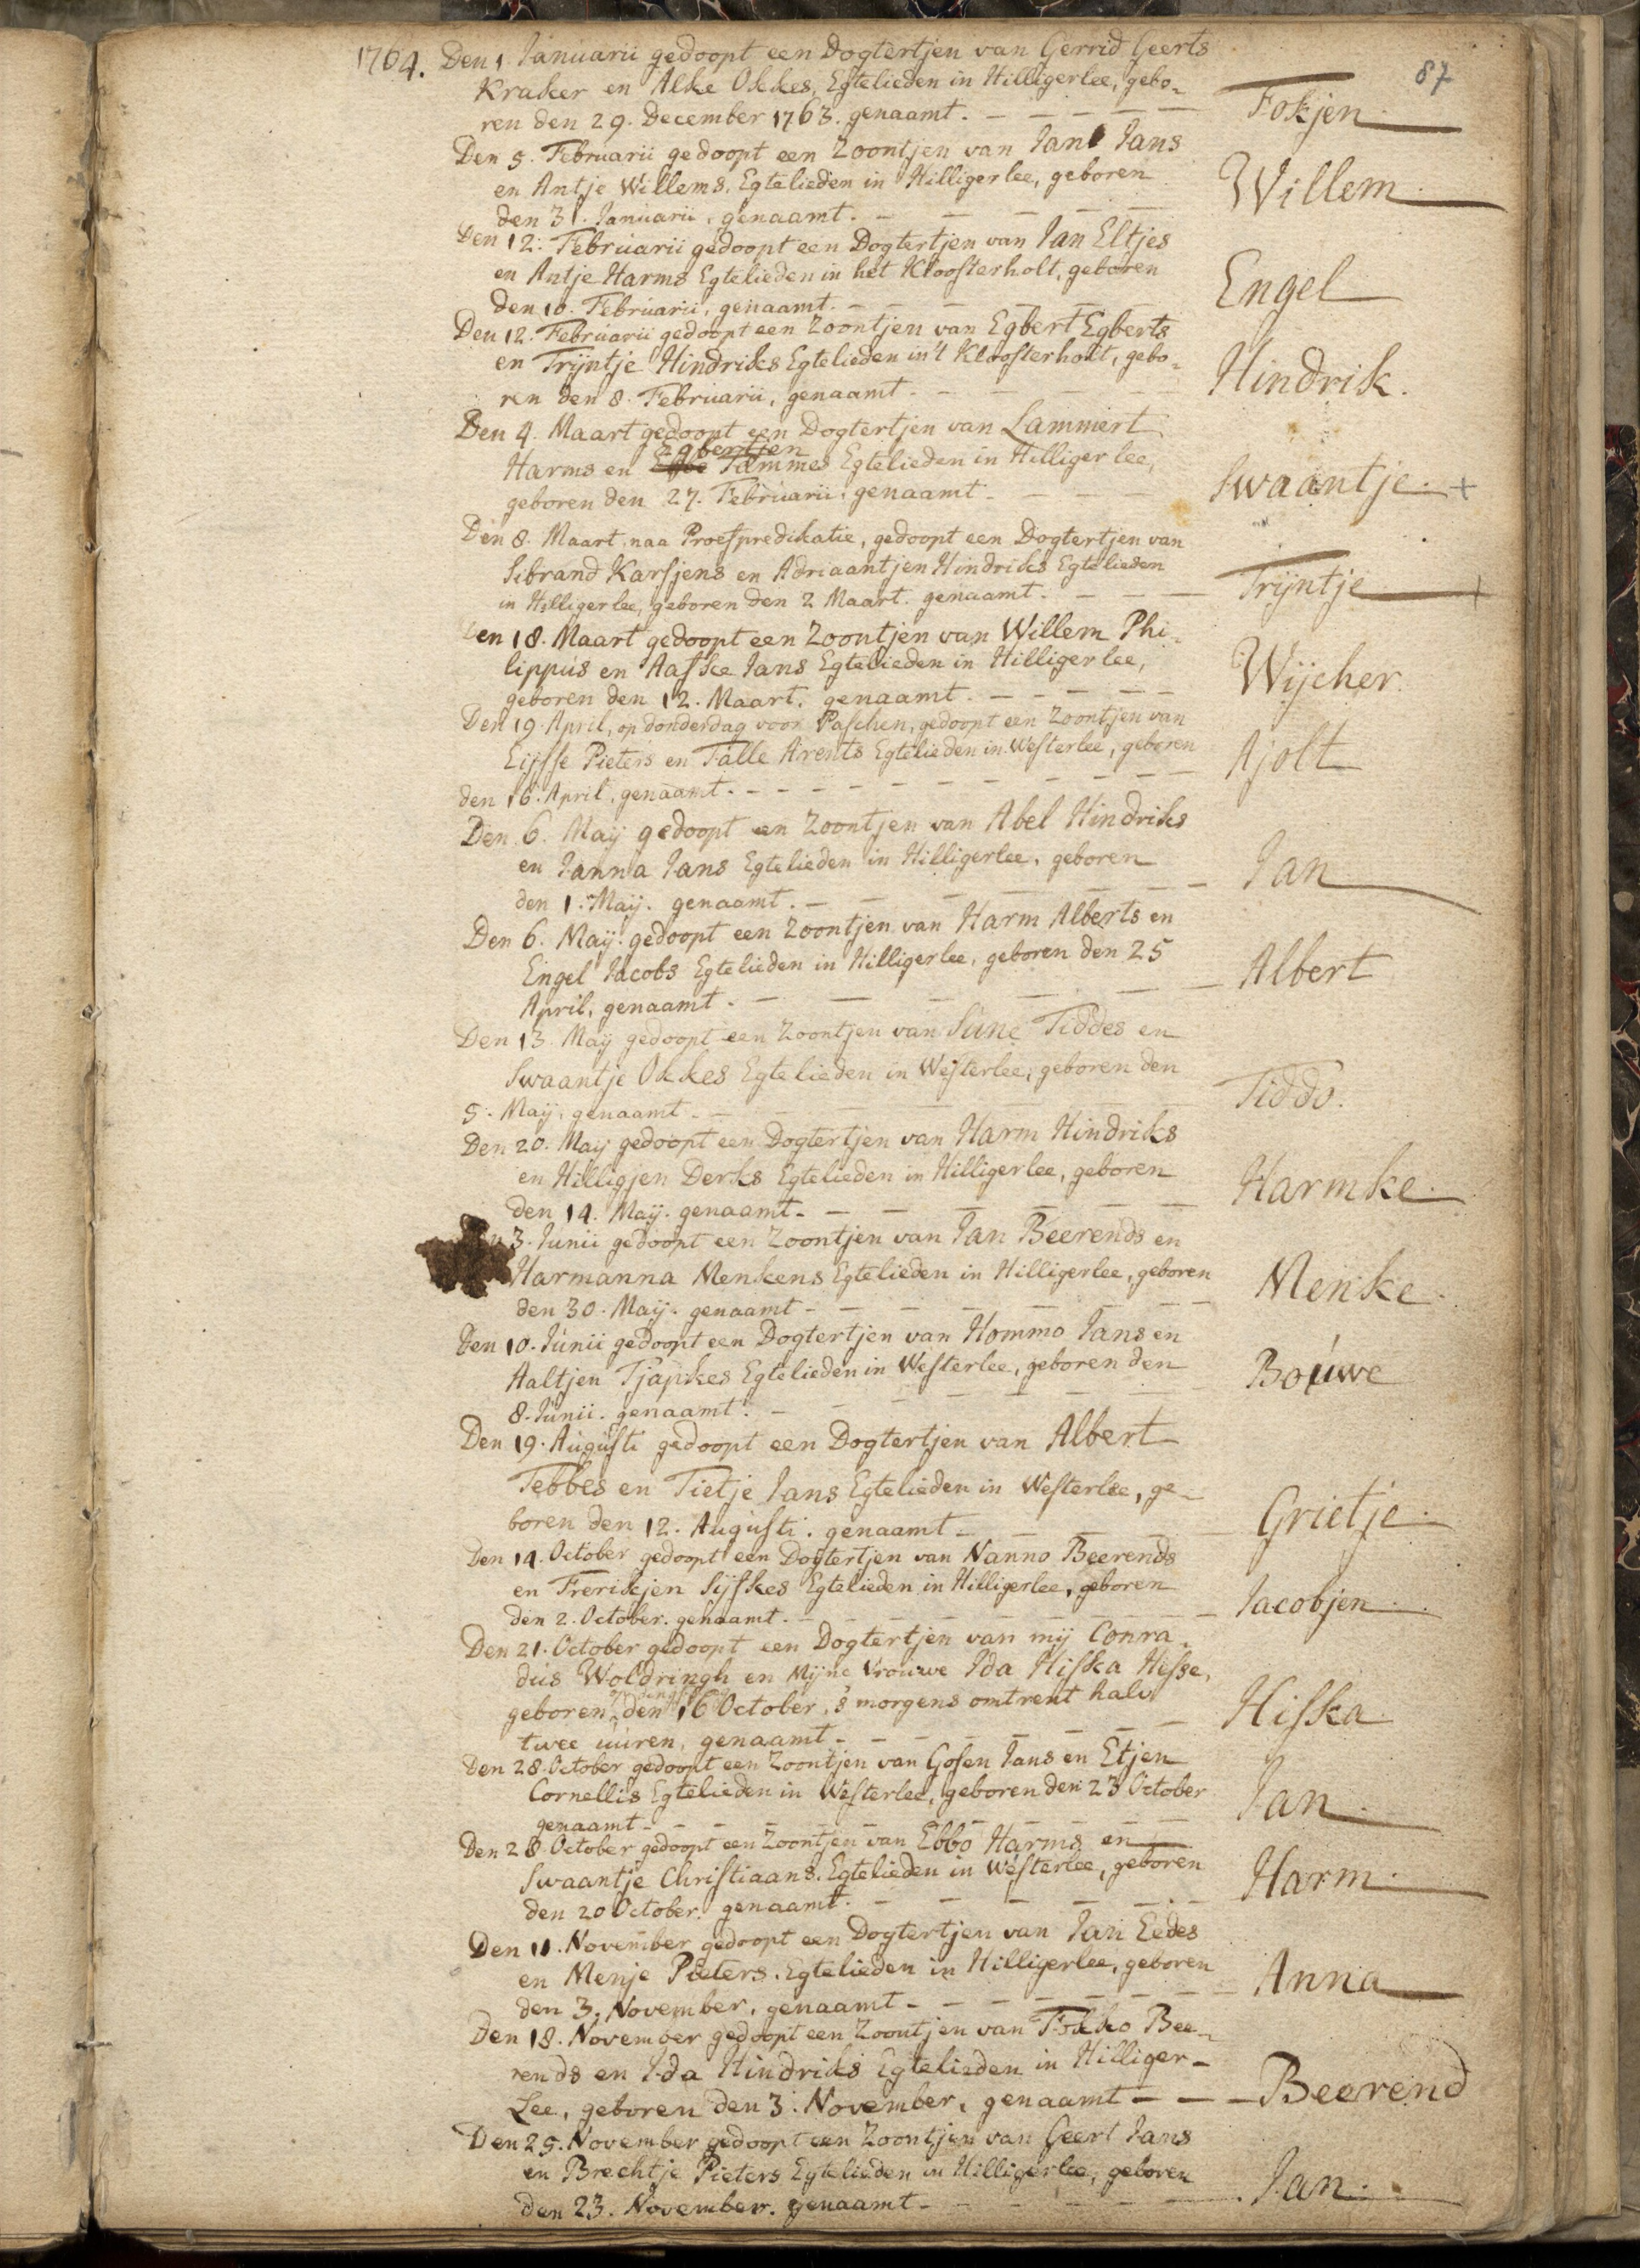 87
1764. Den 1 Januarii gedoopt een Dogtertjen van Gerrid Geerts
Kraker en Alke Okkes, Egtelieden in Hilligerlee, gebo-
ren den 29. December 1763. genaamt. - - - - - Fokjen
Den 5. Februarii gedoopt een Zoontjen van Jan Jans
en Antje Willems, Egtelieden in Hilligerlee, geboren
den 31. Januarii, genaamt. - - - - - Willem
Den 12. Februarii gedoopt een Dogtertjen van Jan Eltjes
en Antje Harms Egtelieden in het Kloosterholt, geboren
den 10. Februarii, genaamt. - - - - - Engel
Den 12. Februarii gedoopt een Zoontjen van Egbert Egberts
en Trijntje Hindriks Egtelieden in't Kloosterholt, gebo-
ren den 8. Februarii, genaamt. - - - - - Hindrik.
Den 4. Maart gedoopt een Dogtertjen van Lammert
Egbertjen
Harms en Tammes Egtelieden in Hilligerlee,
geboren den 27. Februarii, genaamt. - - - - Swaantje. +
Den 8. Maart naa Proefpredikatie, gedoopt een Dogtertjen van
Sibrand Karsjens en Adriaantjen Hindriks Egtelieden
in Hilligerlee, geboren den 2 Maart. genaamt. - - - Trijntje +
Den 18. Maart gedoopt een Zoontjen van Willem Phi-
lippus en Aafke Jans Egtelieden in Hilligerlee,
geboren den 12. Maart. genaamt. - - - - - Wijcher.
Den 19. April, op donderdag voor Paschen, gedoopt een Zoontjen van
Eijsse Pieters en Talle Arents Egtelieden in Westerlee, geboren
den 16. April, genaamt. - - - - - - - - Ajolt
Den 6. Maij gedoopt een Zoontjen van Abel Hindriks
en Janna Jans Egtelieden in Hilligerlee, geboren
den 1. Maij. genaamt. - - - - - - Jan
Den 6. Maij. gedoopt een Zoontjen van Harm Alberts en
Engel Jacobs Egtelieden in Hilligerlee, geboren den 25
April, genaamt. - - - - - - Albert
Den 13. Maij gedoopt een Zoontjen van Sune Tiddes en
Swaantje Okkes Egtelieden in Westerlee, geboren den
5. Maij, genaamt. - - - - - - Tiddo.
Den 20. Maij gedoopt een Dogtertjen van Harm Hindriks
en Hilligjen Derks Egtelieden in Hilligerlee, geboren
den 14. Maij. genaamt. - - - - - - Harmke.
3. Junii gedoopt een Zoontjen van Jan Beerends en
Harmanna Menkens Egtelieden in Hilligerlee, geboren
den 30. Maij. genaamt - - - - - - - Menke
Den 10. Junii gedoopt een Dogtertjen van Hommo Jans en
Aaltjen Tjapkes Egtelieden in Westerlee, geboren den
8. Junii. genaamt. - - - - - - Bouwe
Den 19. Augusti gedoopt een Dogtertjen van Albert
Tebbes en Tietje Jans Egtelieden in Westerlee, ge-
boren den 12. Augusti. genaamt - - - - - Grietje.
Den 14. October gedoopt een Dogtertjen van Nanno Beerends
en Frerikjen Sijfkes Egtelieden in Hilligerlee, geboren
den 2. October. genaamt. - - - - - - Jacobjen.
Den 21. October gedoopt een Dogtertjen van mij Conra-
dus Woldringh en Mijne Vrouwe Ida Hiska Hesse,
geboren den 16 October, 's morgens omtrent halv
twee uuren, genaamt - - - - - - Hiska
Den 28. October gedoopt een Zoontjen van Gosen Jans en Etjen
Cornellis Egtelieden in Westerlee, geboren den 23 October
genaamt - - - - - - - - Jan.
Den 28 October gedoopt een Zoontjen van Ebbo Harms en
Swaantje Christiaans. Egtelieden in Westerlee, geboren
den 20 October. genaamt. - - - - - - Harm.
Den 11. November gedoopt een Dogtertjen van Jan Eedes
en Menje Pieters. Egtelieden in Hilligerlee, geboren
den 3. November, genaamt - - - - - - Anna
Den 18. November gedoopt een Zoontjen van Fokko Bee-
rends en Ida Hindriks Egtelieden in Hilliger-
Lee, geboren den 3. November, genaamt - - - Beerend
Den 25. November gedoopt een Zoontjen van Geert Jans
en Brechtje Pieters Egtelieden in Hilligerlee, geboren
den 23. November. genaamt - - - - - - Jan.